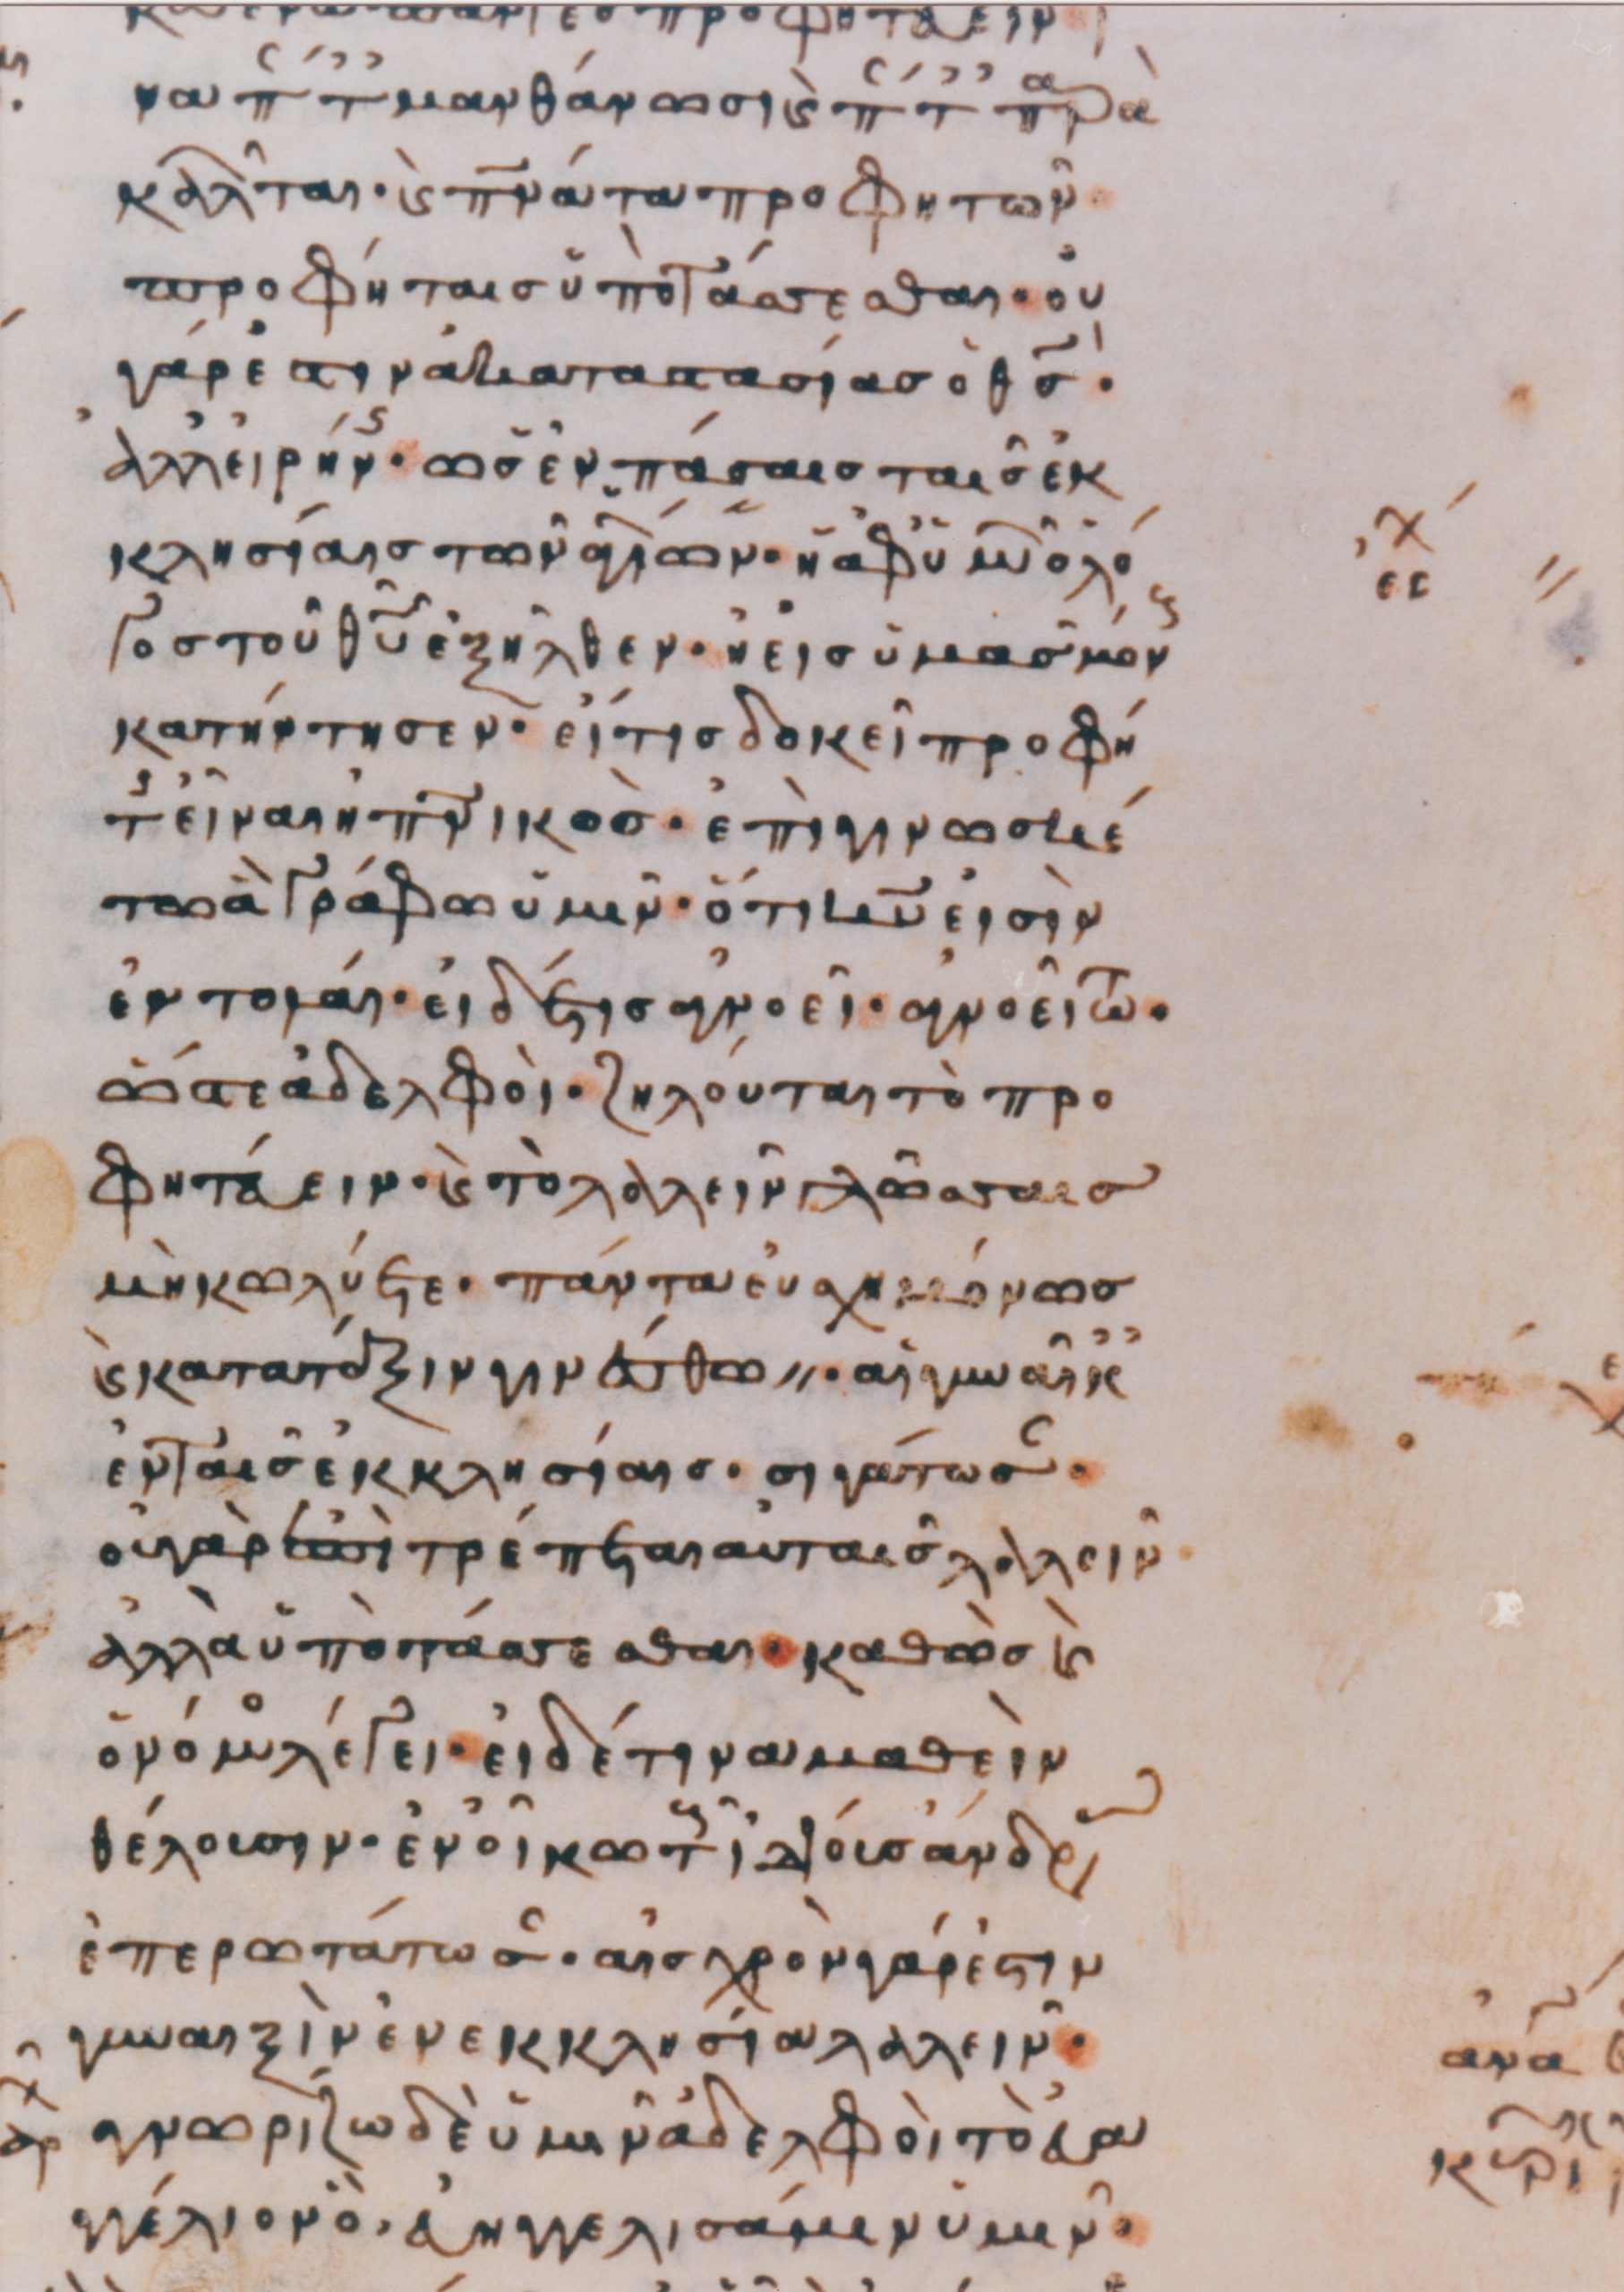 να π τ μανθάνωσι ϗ π τ παρα
καλῆται· ϗ πνάτα προφητῶν·
προφήταις ὑποτάσσεσθαι· οὐ
γάρ ἐστιν ἀκαταστασίας ὁ θς·
ἀλλ εἰρήν· ὡς ἐν πάσαις ταῖς ἐκ
κλησίαις τῶν ἁγίων· ἢ ἀφ ὑμῶν ὁ λό
γος τοῦ θυ ἐξῆλθεν· ἢ εἰς ὑμᾶς μόν
κατήντησεν· εἴ τις δοκεῖ προφή
τ εἶναι ἢ πνικὸς· ἐπιγινωσκέ
τω ἃ γράφω ὑμῖν· ὅτι κυ εἰσὶν
ἐντολαί· εἰ δέ τις ἀγνοεῖ· ἀγνοείτω·
ὥστε ἀδελφοὶ· ζηλούται τὸ προ
φητεύειν· ϗ τὸ λαλεῖν γλώσσαις
μὴ κωλύετε· πάντα εὐσχημόνως
ϗ κατα τάξιν γινέσθω· αἱ γυναῖκ
ἐν ταῖς ἐκκλησίαις· σιγάτωσ·
οὐ γὰρ ἐπιτρέπεται αὐταῖς λαλεῖν
ἀλλὰ ὑποτάσσεσθαι· καθὼς ϗ
ὁ νόμο λέγει· εἰ δέ τινα μαθεὶν
θέλουσιν· ἐν οἴκω τ ἰδίους ἄνδρ
ἐπερωτάτωσ· αἰσχρὸν γάρ ἐστιν
γυναιξὶν ἐν ἐκκλησία λαλεῖν·
γνωρίζω δὲ ὑμῖν ἀδελφοὶ τὸ εὐα
γγέλιον ὃ· εὐηγγελισάμην ὑμῖν·